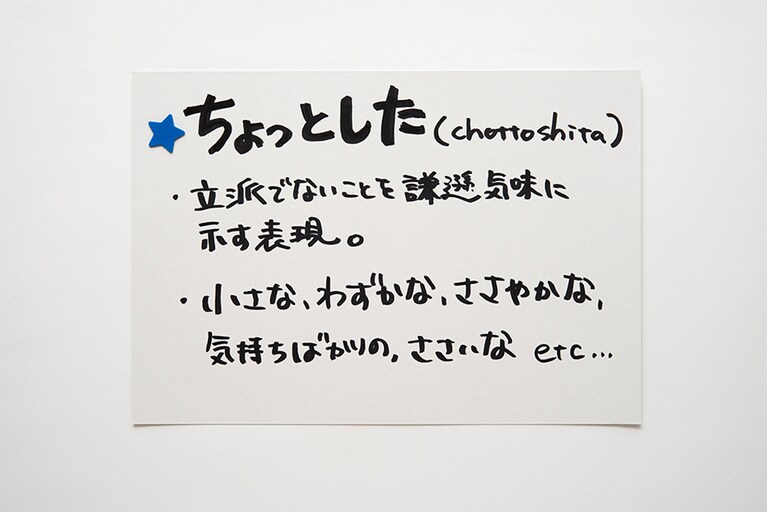 ちょっとした(chottoshita)
・立派でないことを謙遜気味に
示す表現。
・小さな、わずかな、ささやかな、
気持ちばかりの、ささいな etc...